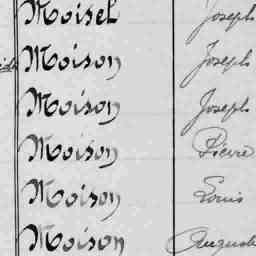 Moisel Joseph
Moison Joseph
Moison Joseph
Moison Pierre
Moison Louis
Moison